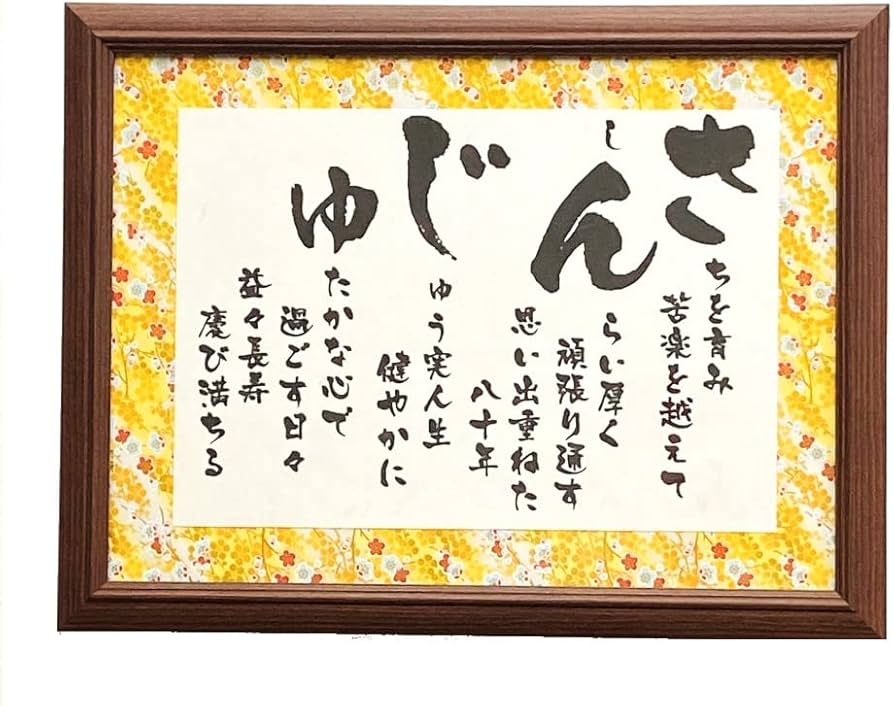 さちを育み
苦楽を越えて
し
んらい厚く
頑張り通す
思い出重ねた
八十年
じゆう実人生
健やかに
ゆたかな心で
過ごす日々
益々長寿
慶び満ちる